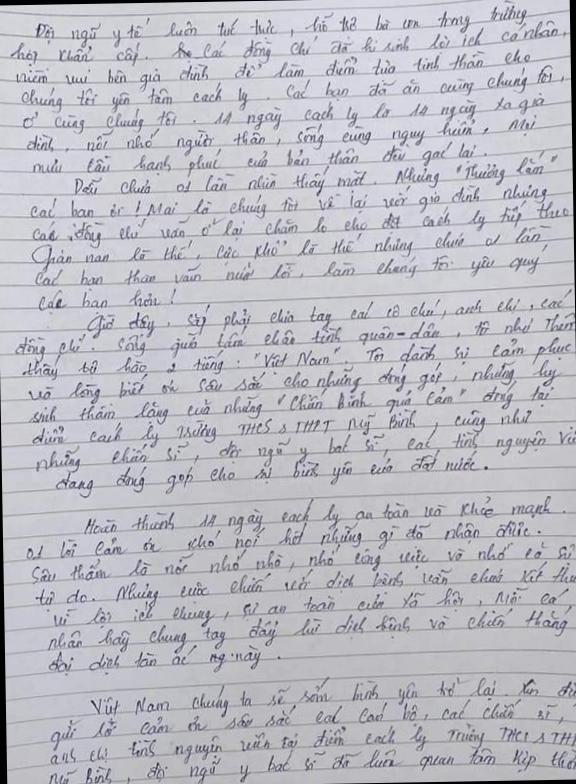 Đội ngũ y tế luôn túc trực, hỗ trợ bà con trong trường
hợp khẩn cấp. Các đồng chí đã hi sinh lợi ích cá nhân,
niềm vui bên gia đình để làm điểm tựa tinh thần cho
chúng tôi yên tâm cách ly. Các bạn đã ăn cùng chúng tôi,
ở cùng chúng tôi. 14 ngày cách ly là 14 ngày xa gia
đình, nỗi nhớ người thân, sống cùng nguy hiểm, mọi
mưu cầu hạnh phúc của bản thân đều gác lại.
Dẫu chưa 01 lần nhìn thấy mặt. Nhưng "Thương lắm"
các bạn ơi! Mai là chúng tôi về lại với gia đình nhưng
các đồng chí vẫn ở lại chăm lo cho đợt cách ly tiếp theo
Gian nan là thế, cực khổ là thế nhưng chưa 01 lần
các bạn than vãn nửa lời, làm chúng tôi yêu quý
các bạn hơn!
Giờ đây, sắp phải chia tay các cô chú, anh chị, các
đồng chí. Sống quá tấm chân tình quân-dân, tô như thêm
thấy tự hào 2 tiếng "Việt Nam". Tôi dành sự cảm phục
và lòng biết ơn sâu sắc cho những đóng góp, những hy
sinh thầm lặng của những "Chiến Binh quả cảm" đóng tại
điểm cách ly Trường THCS & THPT Mỹ Bình, cũng như
những chiến sĩ, đội ngũ y bác sĩ, các tình nguyện
đang đóng góp cho sự bình yên của đất nước.
Hoàn thành 14 ngày cách ly an toàn và khỏe mạnh.
01 lời cảm ơn khó nói hết những gì đã nhận được.
Sâu thẳm là nỗi nhớ nhà, nhớ công việc và nhớ cả sự
tự do. Nhưng cuộc chiến với dịch bệnh vẫn chưa kết
vì lợi ích chung, sự an toàn của xã hội, mỗi cá
nhân hãy chung tay đẩy lùi dịch bệnh và chiến thắng
đại dịch tàn ác này.
Việt Nam chúng ta sẽ sớm bình yên trở lại. Xin
gửi lời cảm ơn sâu sắc các cán bộ, các chiến sĩ,
anh chị tình nguyện viên tại điểm cách ly Trường THCS & THPT
Mỹ Bình, đội ngũ y bác sĩ đã luôn quan tâm kịp thời